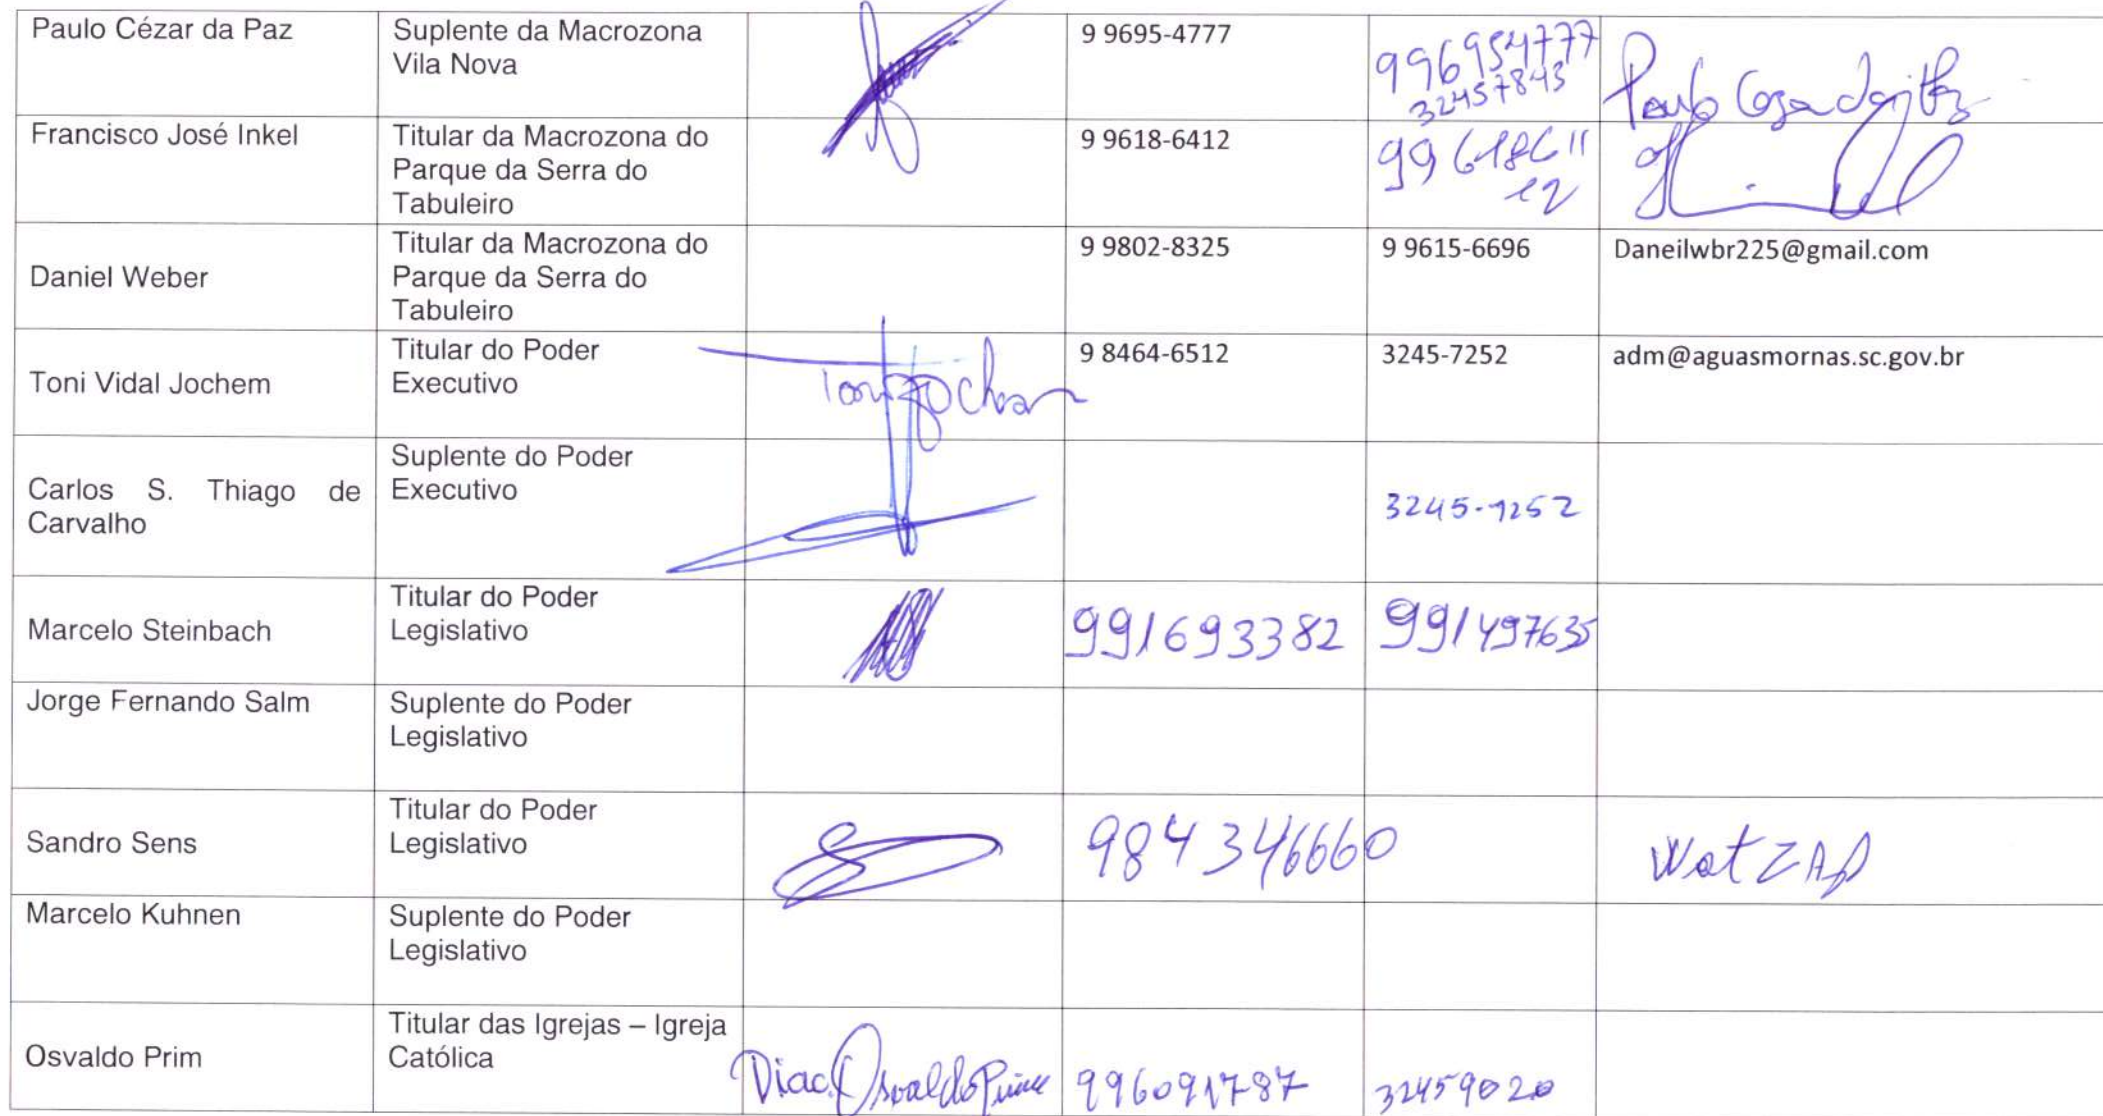 Paulo Cézar da Paz
Suplente da Macrozona
Vila Nova
9 9695-4777
996954777
32457843
Francisco José Inkel
Titular da Macrozona do
Parque da Serra do
Tabuleiro
9 9618-6412
Daniel Weber
Titular da Macrozona do
Parque da Serra do
Tabuleiro
9 9802-8325
9 9615-6696
Daneilwbr225@gmail.com
Toni Vidal Jochem
Titular do Poder
Executivo
Toni Jochem
9 8464-6512
3245-7252
adm@aguasmornas.sc.gov.br
Carlos S. Thiago de
Carvalho
Suplente do Poder
Executivo
3245-7252
Marcelo Steinbach
Titular do Poder
Legislativo
991693382
991497635
Jorge Fernando Salm
Suplente do Poder
Legislativo
Sandro Sens
Titular do Poder
Legislativo
984346660
WatZAp
Marcelo Kuhnen
Suplente do Poder
Legislativo
Osvaldo Prim
Titular das Igrejas – Igreja
Católica
Diac. Osvaldo Prim
996091787
32459020